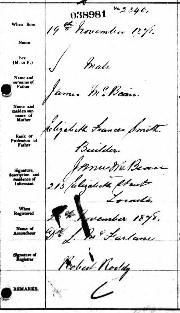 038981
No 2240.
When Born
19th November 1878.
Name
Sex
(M. or F.)
Male
Name and
surname of
Father
James McBean.
Name and maiden surname of
Mother
Elizabeth Frances Smith.
Rank or
Profession of
Father
Builder.
Signature,
description and
residence of
Informant
James McBean
213 Elizabeth Street
When
Registered
November 1878.
Name of
Accoucheur
Dr L. McFarlane
Signature of
Robert Roddy
REMARKS.